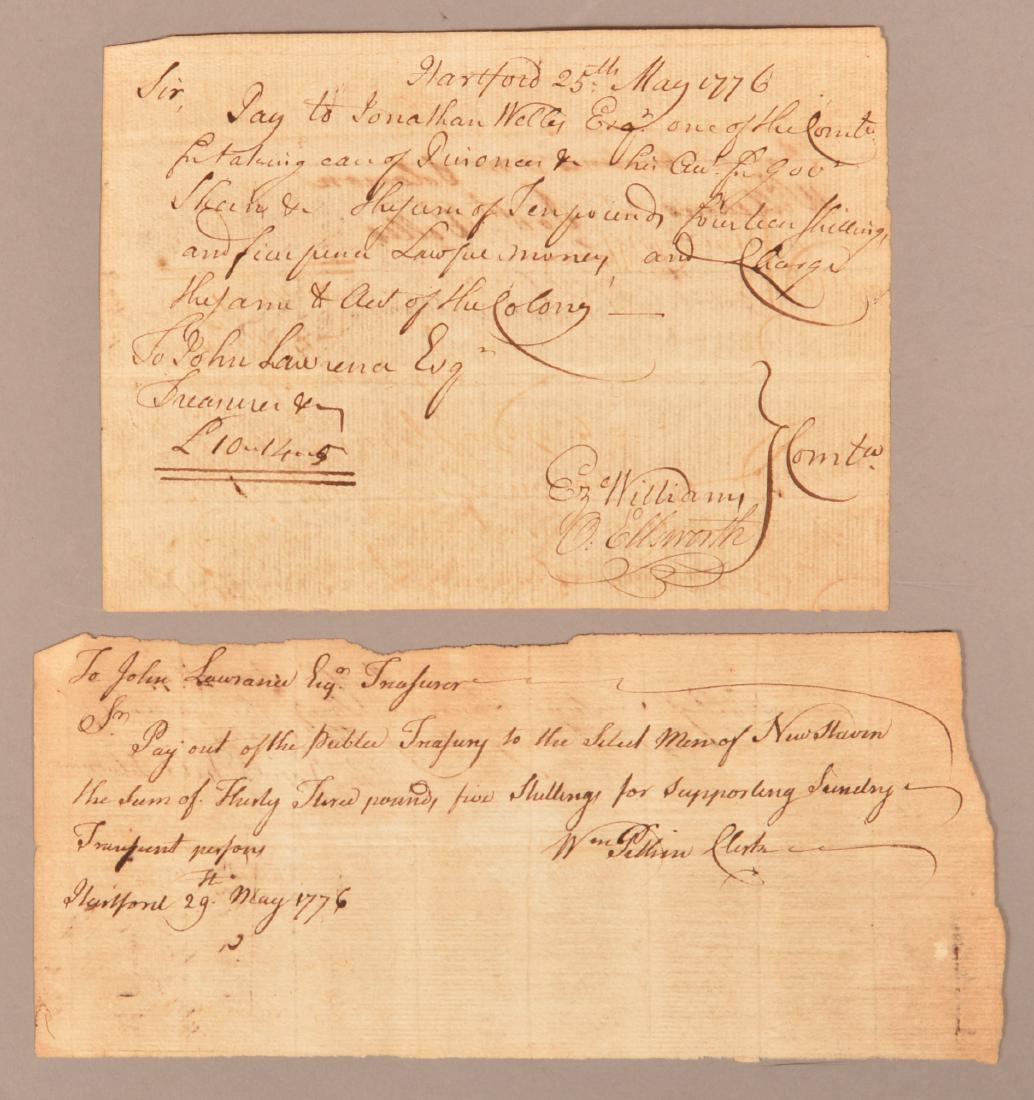 Hartford 25th May 1776
Sir,
Pay to Jonathan Welles Esqr. one of the Comtee
for taking care of Prisoners & his Acct. for Govr
Skeen & the sum of Ten pounds fourteen shillings
and five pence Lawful money, and Charge
the same to Acct of the Colony
To John Lawrence Esqr
Treasurer &c
£10 . . 14 . . 5
Ezc Williams
O. Ellsworth
Comtee
To John Lawrance Esqr. Treasurer
Sr.
Pay out of the Publee Treasury to the Select Men of New Haven
the Sum of Thirty Three pounds five Shillings for Supporting Sundry
Transient persons
Wm Pitkin Clerk
Hartford 29th. May 1776